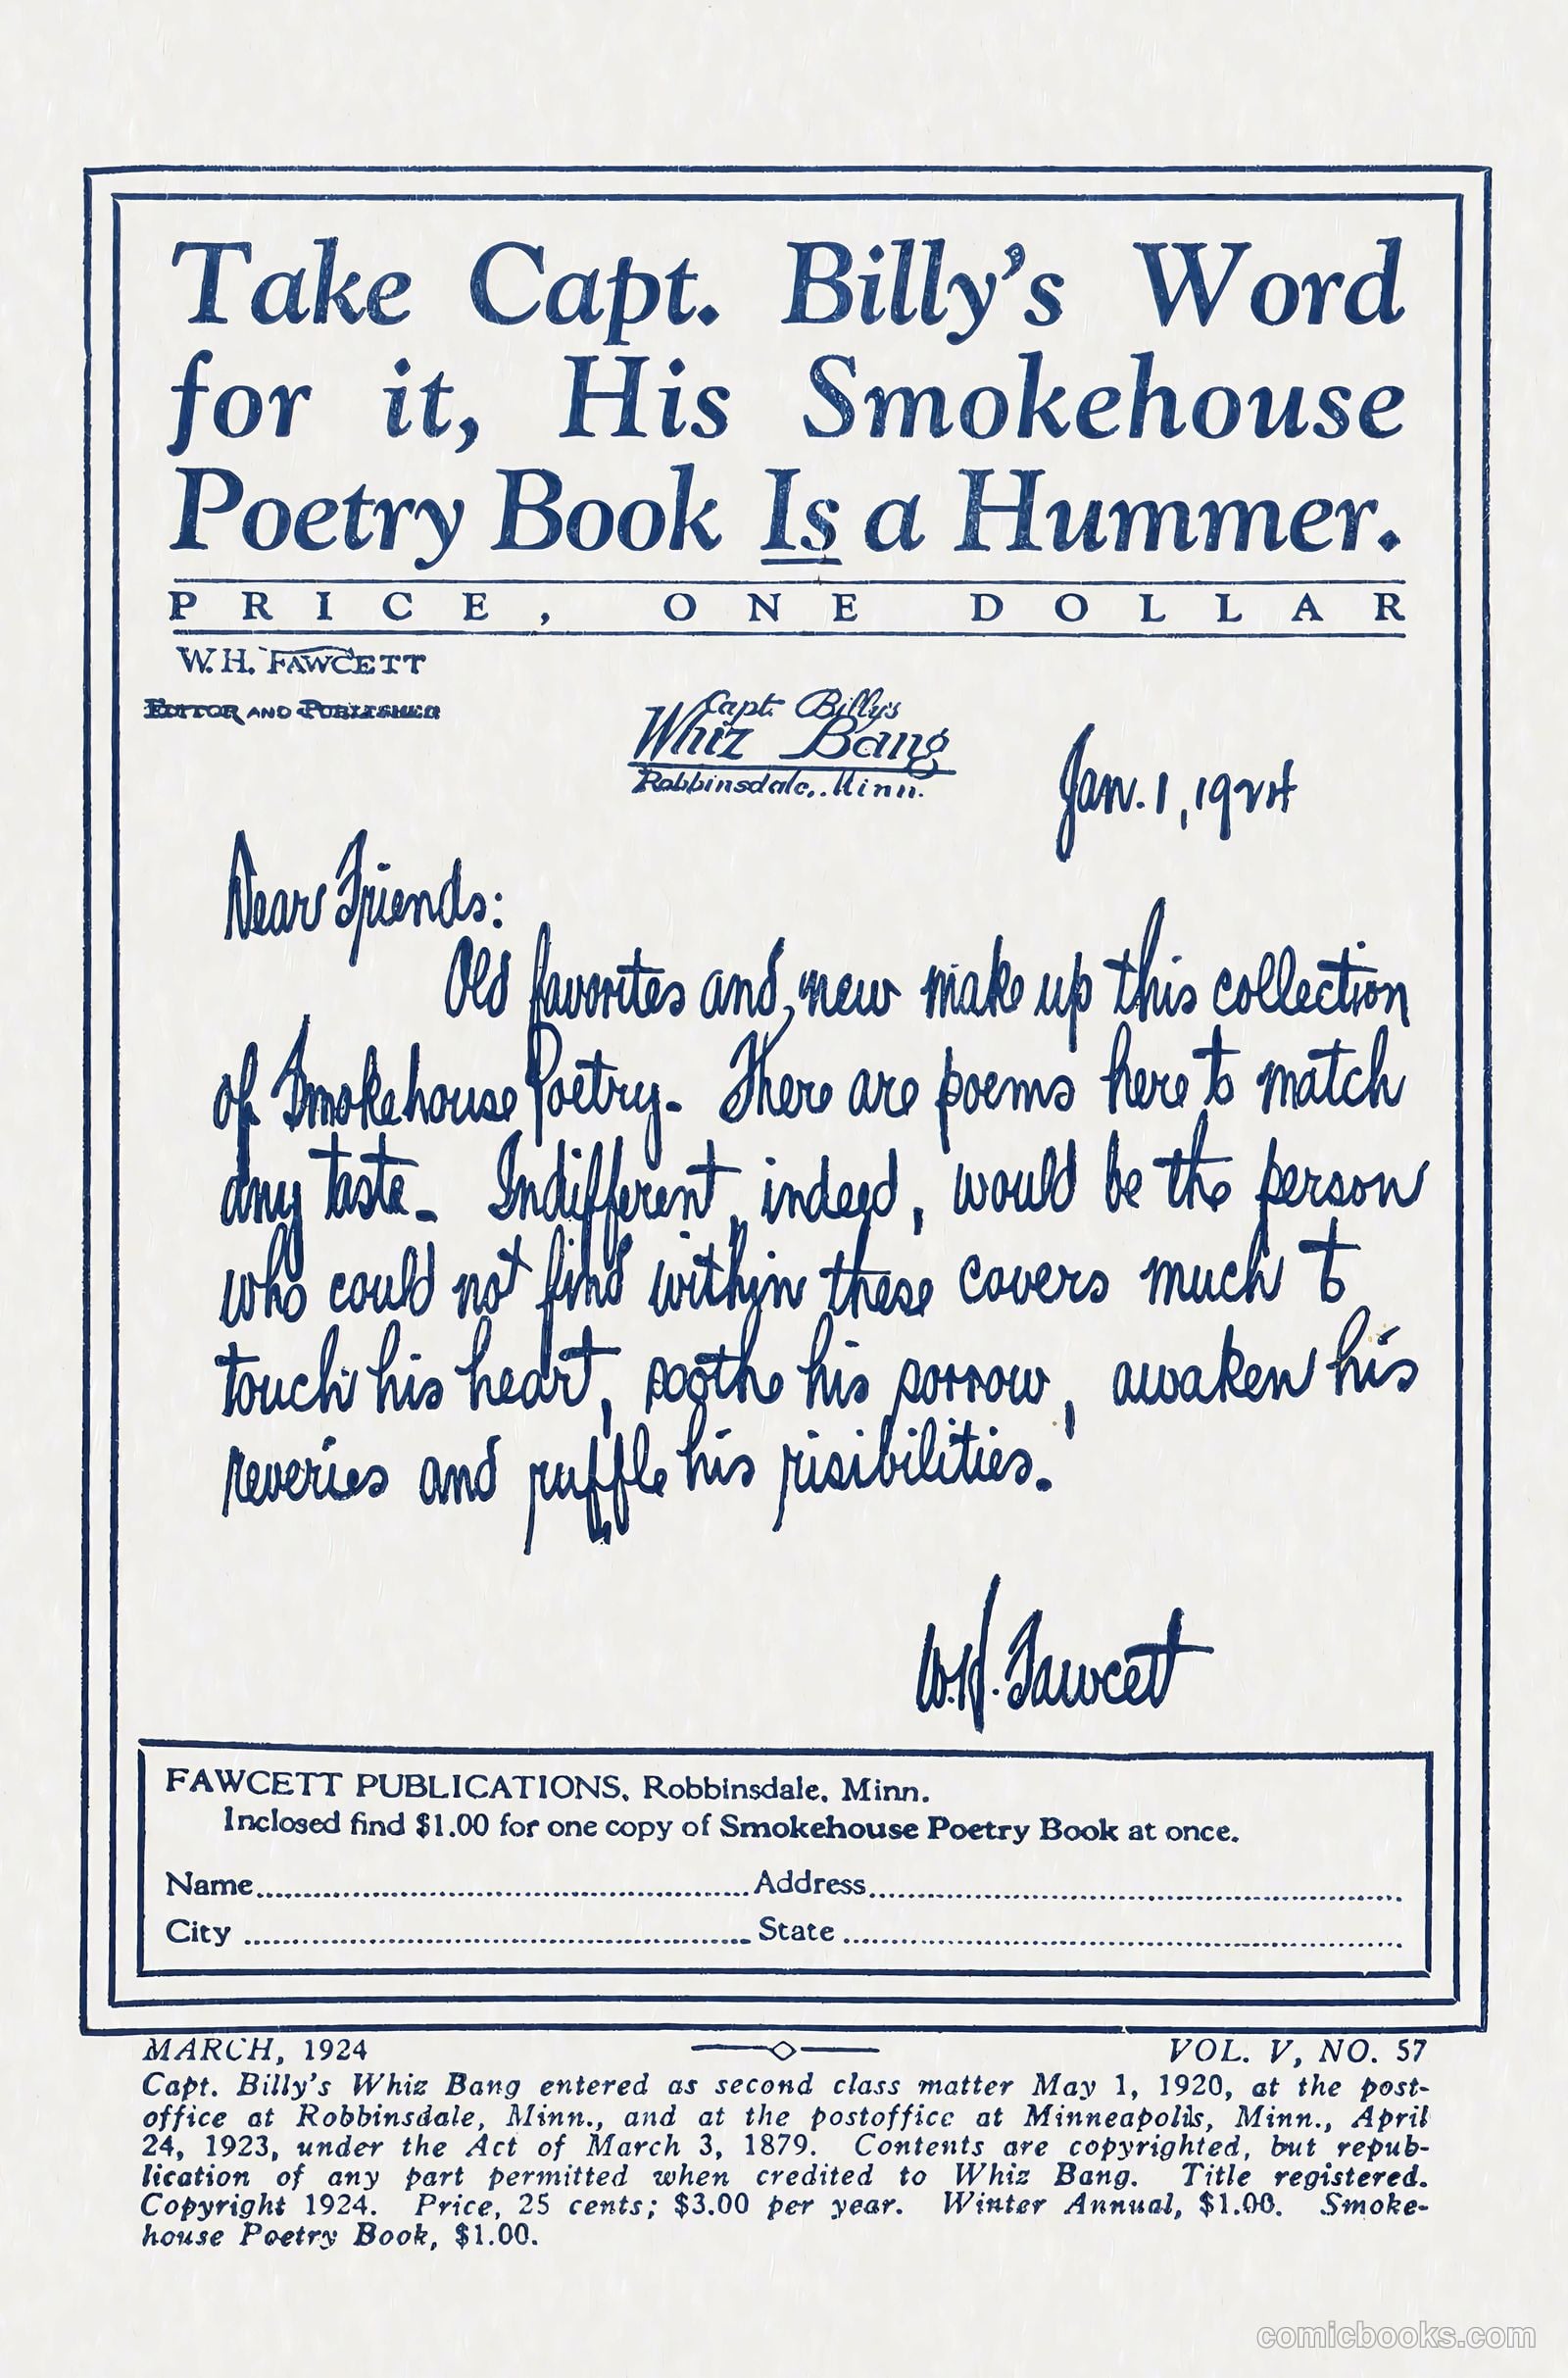 Take Capt. Billy's Word
for it, His Smokehouse
Poetry Book Is a Hummer.
PRICE, ONE DOLLAR
W. H. FAWCETT
EDITOR AND PUBLISHER
Capt. Billy's
Whiz Bang
Robbinsdale, Minn.
Jan. 1, 1924
Dear Friends:
Old favorites and new make up this collection
of Smokehouse Poetry. There are poems here to match
any taste. Indifferent, indeed, would be the person
who could not find within these covers much to
touch his heart, soothe his sorrow, awaken his
reveries and ruffle his risibilities.
W.H. Fawcett
FAWCETT PUBLICATIONS, Robbinsdale, Minn.
Inclosed find $1.00 for one copy of Smokehouse Poetry Book at once.
Name Address
City State
MARCH, 1924 VOL. V, NO. 57
Capt. Billy's Whiz Bang entered as second class matter May 1, 1920, at the post-
office at Robbinsdale, Minn., and at the postoffice at Minneapolis, Minn., April
24, 1923, under the Act of March 3, 1879. Contents are copyrighted, but repub-
lication of any part permitted when credited to Whiz Bang. Title registered.
Copyright 1924. Price, 25 cents; $3.00 per year. Winter Annual, $1.00. Smoke-
house Poetry Book, $1.00.
comicbooks.com